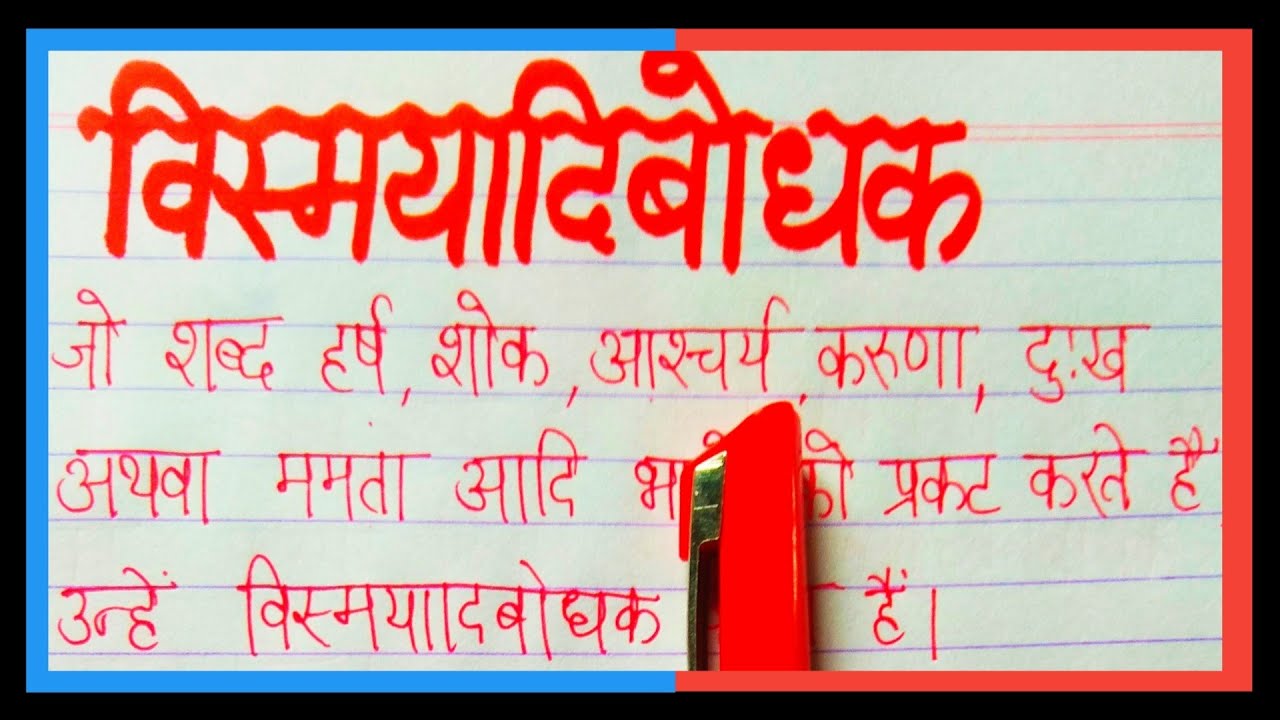 विस्मयादिबोधक
जो शब्द हर्ष, शोक, आश्चर्य, करुणा, दुःख
अथवा ममता आदि को प्रकट करते हैं
उन्हें विस्मयादिबोधक हैं।